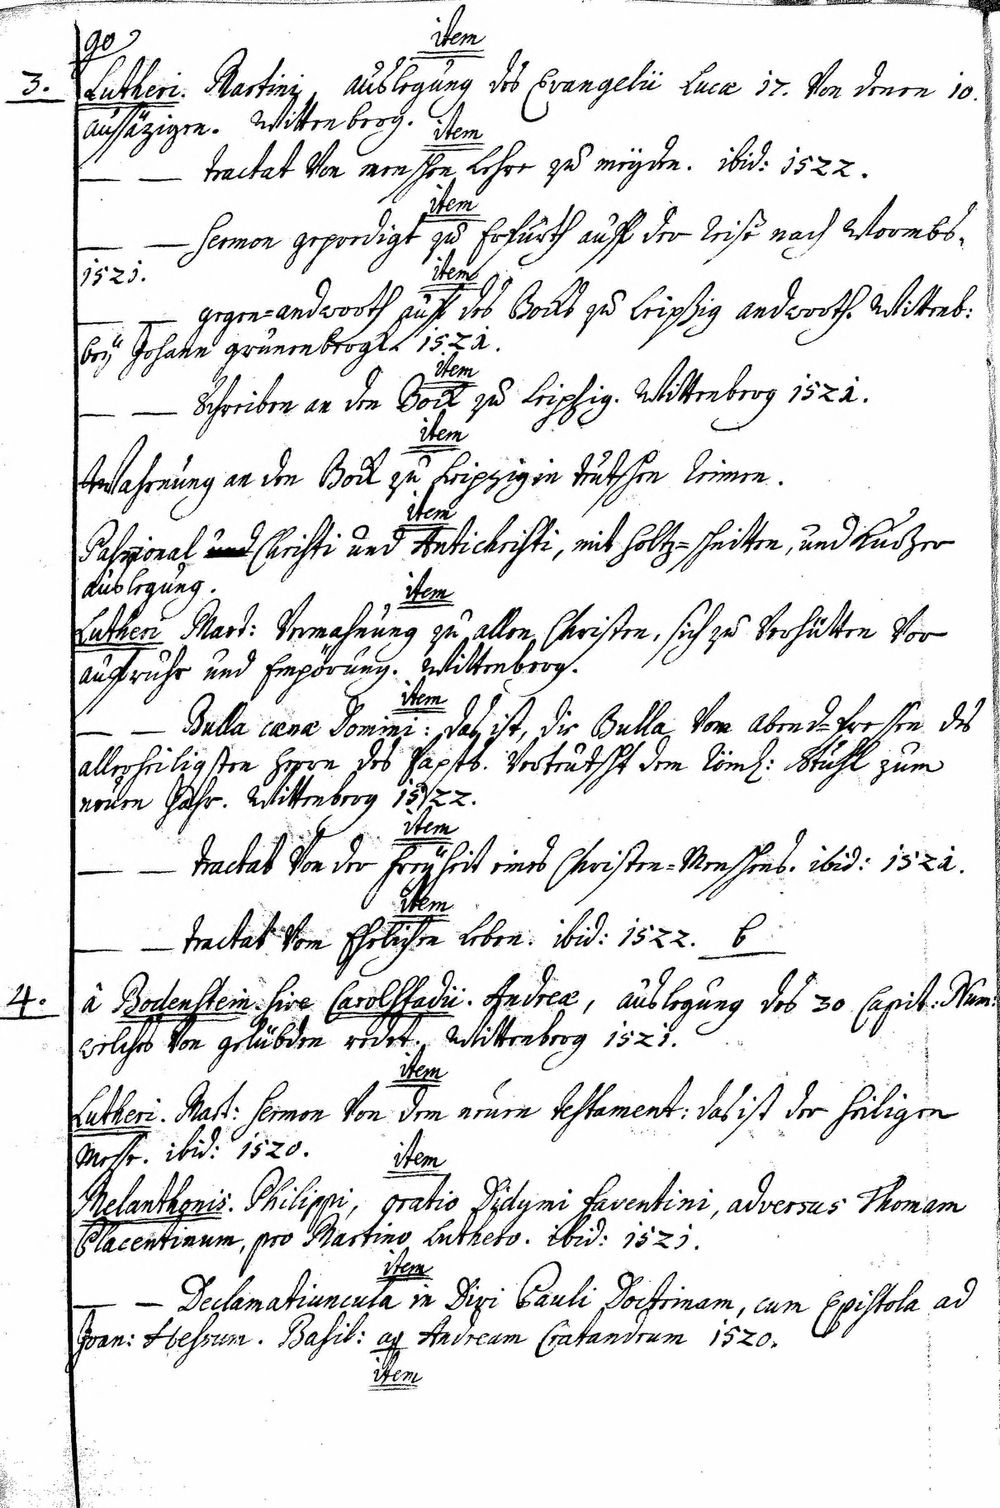 90
item
3. Lutheri. Martini, auslegung des Evangelii Lucæ 17. Von denen 10.
aussäzigen. Wittenberg.
item
— — tractat Von menschen Lehre zu meÿden. ibid: 1522.
item
— — Sermon geprediget zu Erfurth auff der Reise nach Wormbs.
1521.
item
— — gegen=andworth auff des Bocks zu Leipzig andworth. Wittenb:
beÿ Johann grünenberg. 1521.
item
— — Schreiben an den Bock zu Leipzig. Wittenberg 1521.
item
Wahrnung an den Bock zu Leipzig in teutschen Reimen.
item
Passional Christi und Antichristi, mit holtz=schnitten, und kurzer
auslegung.
item
Lutheri Mart: Vermahnung zu allen Christen, sich zu Verhütten Vor
auffruhr und Empörung. Wittenberg.
item
— — Bulla cænæ Domini: das ist, die Bulla Vom abend=fressen des
allerheiligsten Herrn des Papsts. Verteutscht dem Röml: Stuhl zum
neuen Jahr. Wittenberg 1522.
item
— — tractat Von der Freÿheit eines Christen=Menschens. ibid: 1521.
item
— — tractat Vom Ehelichen Leben. ibid: 1522. 6
4. â Bodenstein sive Carolstadii. Andreæ, auslegung des 30 Capit: Num:
welches Von gelübden redet. Wittenberg 1521.
item
Lutheri. Mart: Sermon Von dem neuen testament: das ist der heiligen
Messe. ibid: 1520.
item
Melanthonis. Philippi, oratio Didymi Faventini, adversus Thomam
Placentinum, pro Martino Luthero. ibid: 1521.
item
— — Declamatiuncula in Divi Pauli Doctrinam, cum Epistola ad
Joan: Hessum. Basil: ap Andream Cratandrum 1520.
item